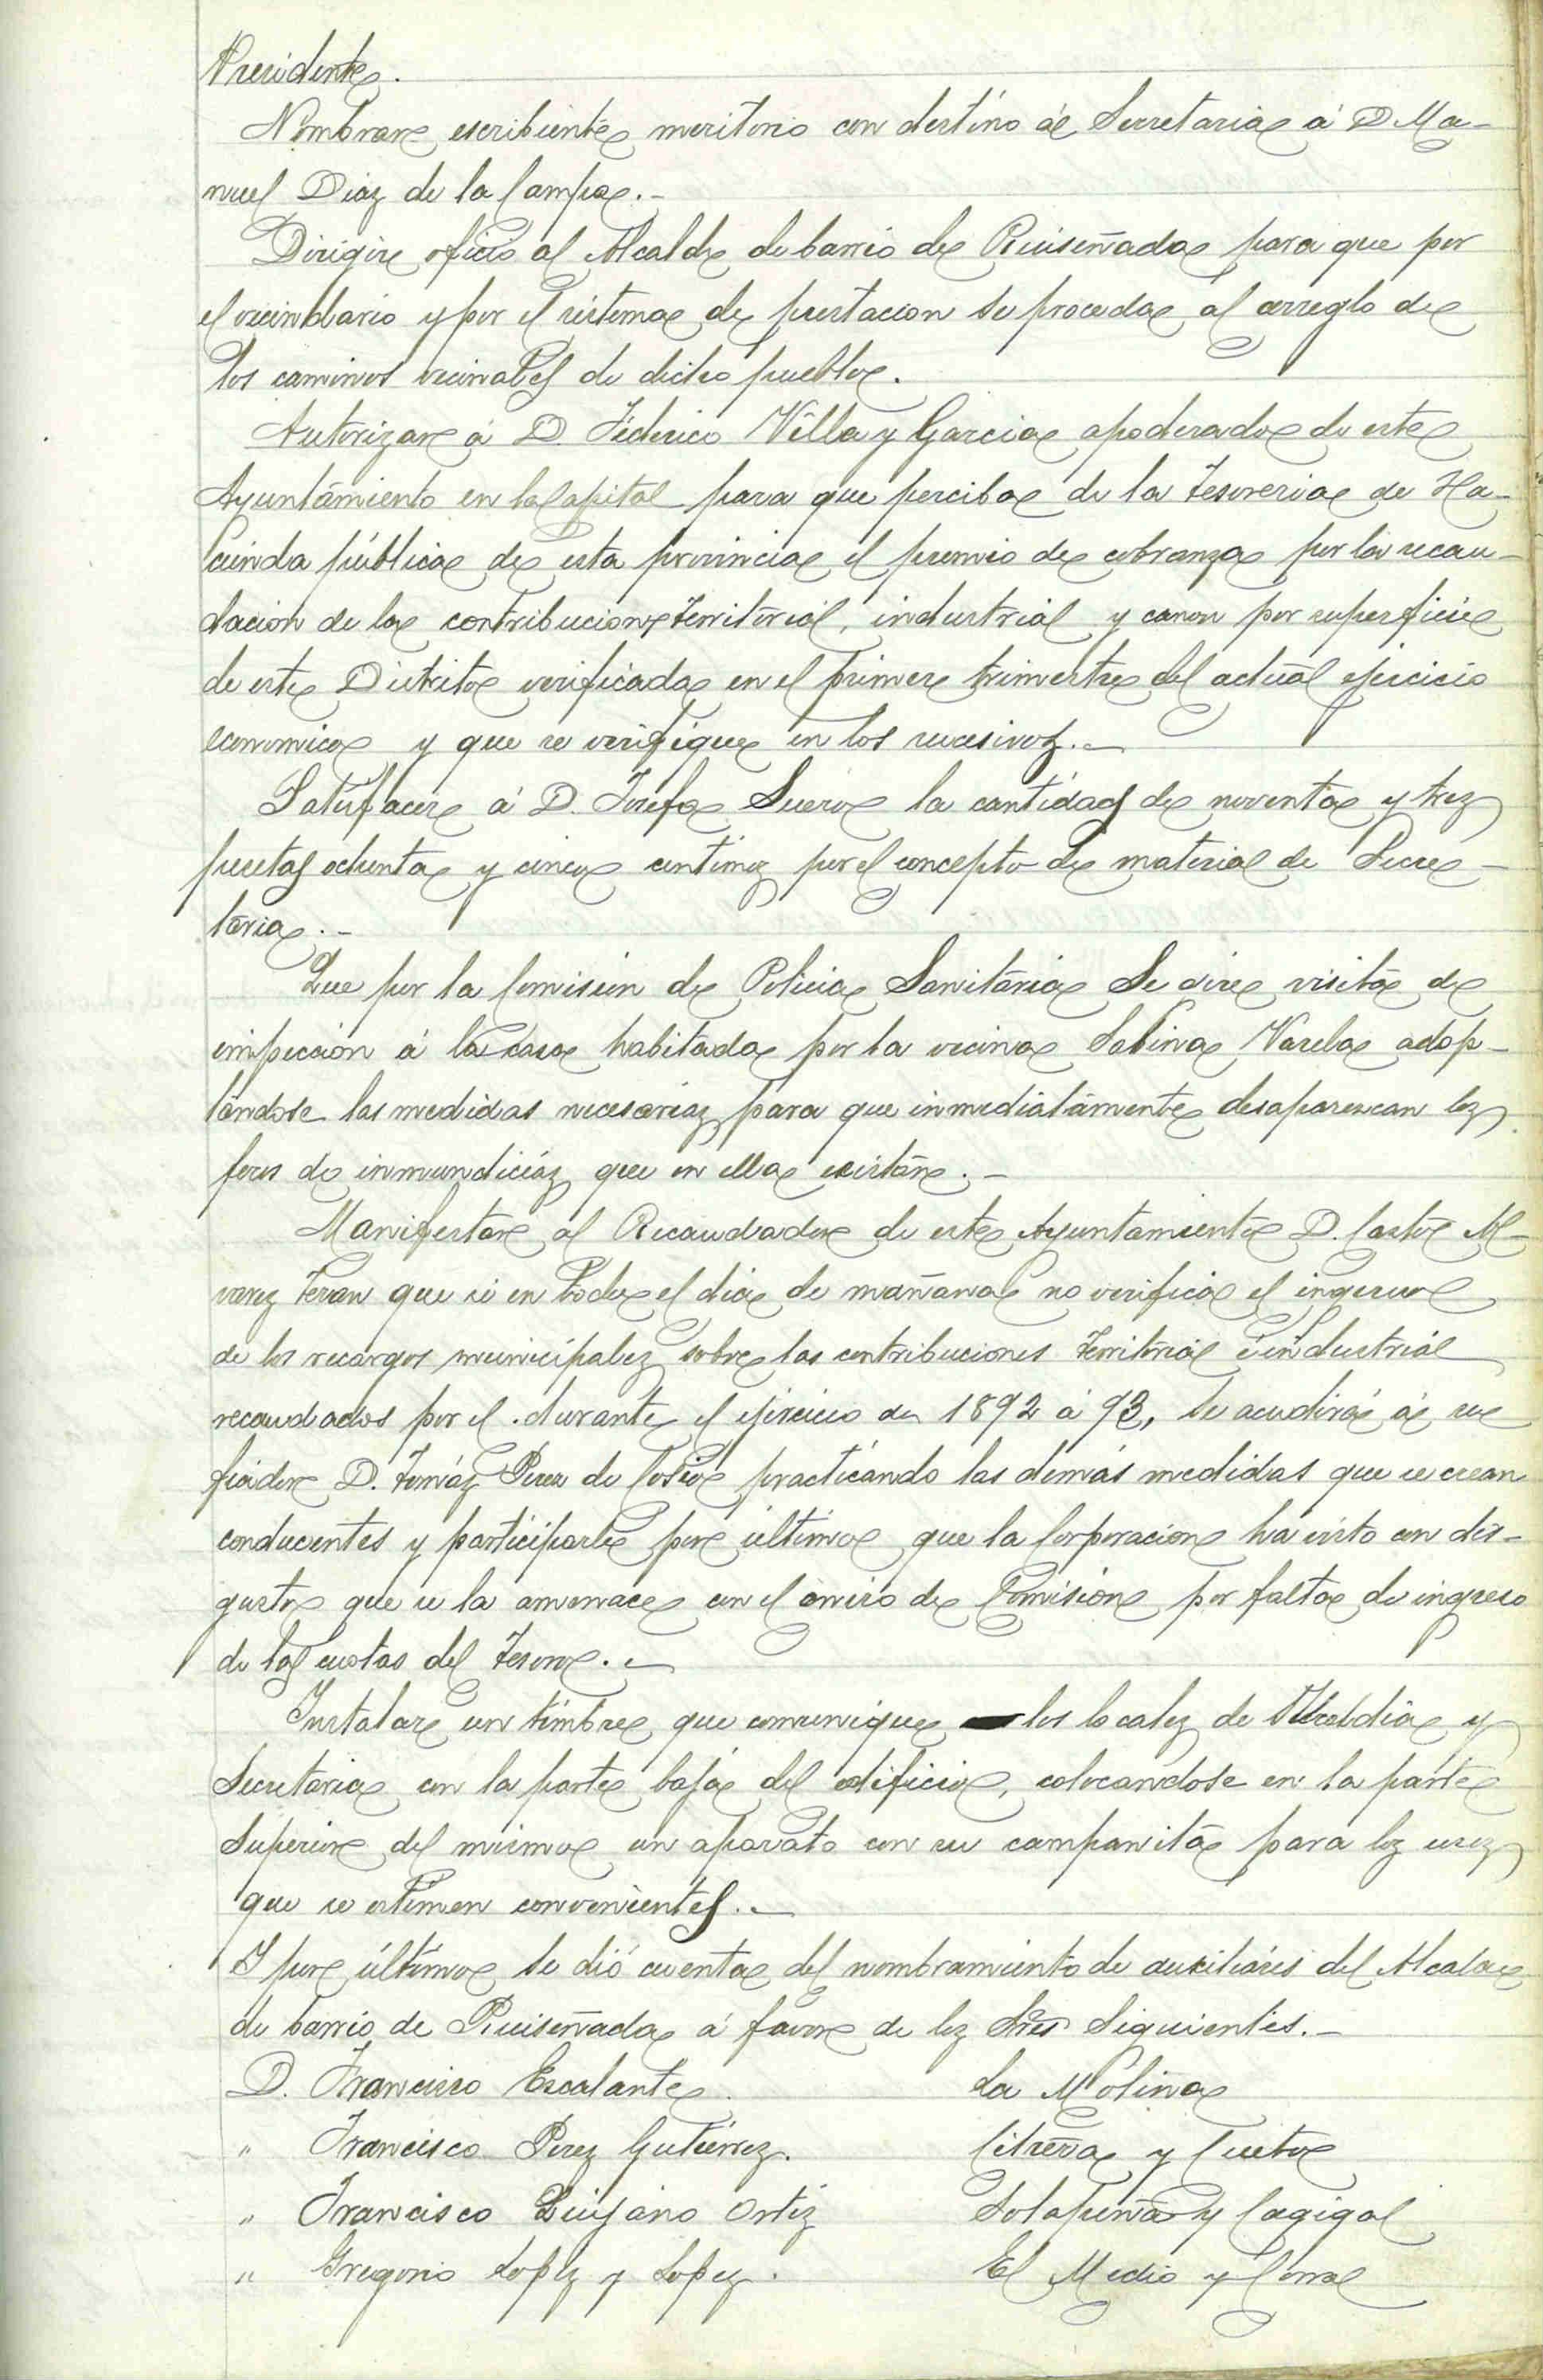 Presidente.
Nombrar escribiente meritorio con destino á Secretaria á D Ma-
nuel Diaz de la Campa.-
Dirigir oficio al Alcalde de barrio de Ruiseñada para que por
el vecindario y por el sistema de prestacion se proceda al arreglo de
los caminos vecinales de dicho pueblo.
Autorizar á D. Federico Villa y Garcia apoderado de este
Ayuntamiento en la Capital para que perciba de la Tesoreria de Ha-
cienda pública de esta provincia el premio de cobranza por la recau-
dacion de la contribucion territorial, industrial y canon por superficie
de este Distrito verificada en el primer trimestre del actual ejercicio
economico y que se verifique en los sucesivos.-
Satisfacer á D. Josefa Suero la cantidad de noventa y tres
pesetas ochenta y cinco centimos por el concepto de material de Secre-
taria.-
Que por la Comisión de Policia Sanitaria se gire visita de
inspeccion á la casa habitada por la vecina Sabina Varela adop-
tandose las medidas necesarias para que inmediatamente desaparezcan los
focos de inmundicias que en ella existan.-
Manifestar al Recaudador de este Ayuntamiento D. Castor Al-
varez Teran que si en todo el dia de mañana no verifica el ingreso
de los recargos municipales sobre las contribuciones territorial é industrial
recaudados por el durante el ejercicio de 1892 á 93, se acudirá á su
fiador D. Tomás Perez de Cosio practicando las demás medidas que se crean
conducentes y participarle por último que la Corporacion ha visto con dis-
gusto que se la amenace con el envio de Comision por falta de ingreso
de las cuotas del Tesoro.-
Instalar un timbre que comunique los locales de Alcaldia y
Secretaria con la parte baja del edificio, colocandose en la parte
superior del mismo un aparato con su campanita para los usos
que se estimen convenientes.-
Y por último se dió cuenta del nombramiento de auxiliares del Alcalde
de barrio de Ruiseñada á favor de los Sres siguientes.-
D. Francisco Escalante. La Molina
" Francisco Perez Gutierrez. Citreña y Cueto
" Francisco Quijano Ortiz Solapeña y Cagigal
" Gregorio Lopez y Lopez. El Medio y Corral